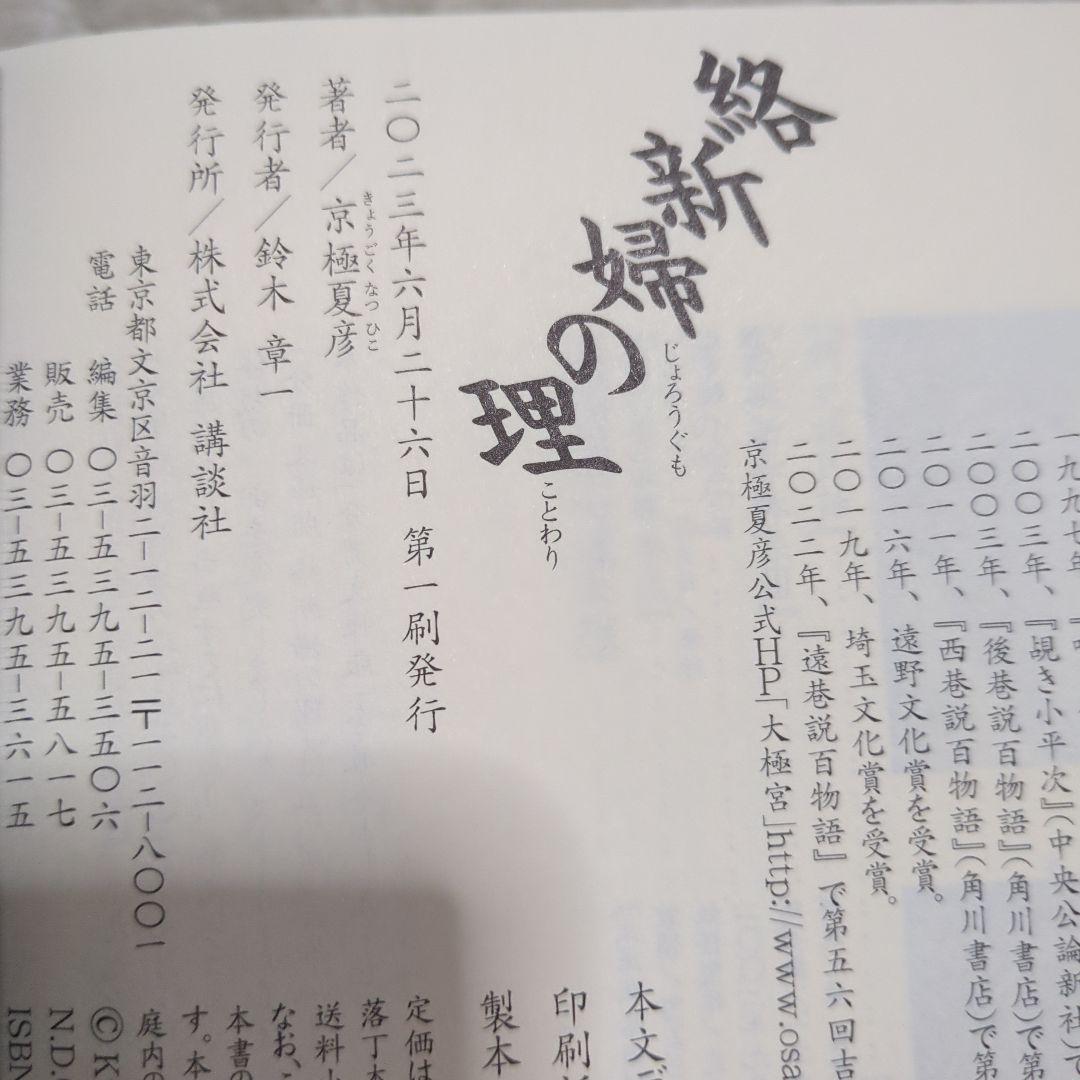 一九九七年、『
二〇〇三年、『覘き小平次』(中央公論新社)で
二〇〇三年、『後巷説百物語』(角川書店)で第
二〇一一年、『西巷説百物語』(角川書店)で第
二〇一六年、遠野文化賞を受賞。
二〇一九年、埼玉文化賞を受賞。
二〇二二年、『遠巷説百物語』で第五六回吉
京極夏彦公式HP「大極宮」http://www.osa
絡新婦の理
じょろうぐも
ことわり
二〇二三年六月二十六日 第一刷発行
著者/京極夏彦
きょうごくなつひこ
発行者/鈴木 章一
発行所/株式会社 講談社
東京都文京区音羽二-一二-二一〒一一二-八〇〇一
電話 編集 〇三-五三九五-三五〇六
販売 〇三-五三九五-五八一七
業務 〇三-五三九五-三六一五
本文デ
印刷
製本
定価は
落丁本
送料小
なお、こ
本書の
す。本
庭内の
©K
N.D.
ISBN